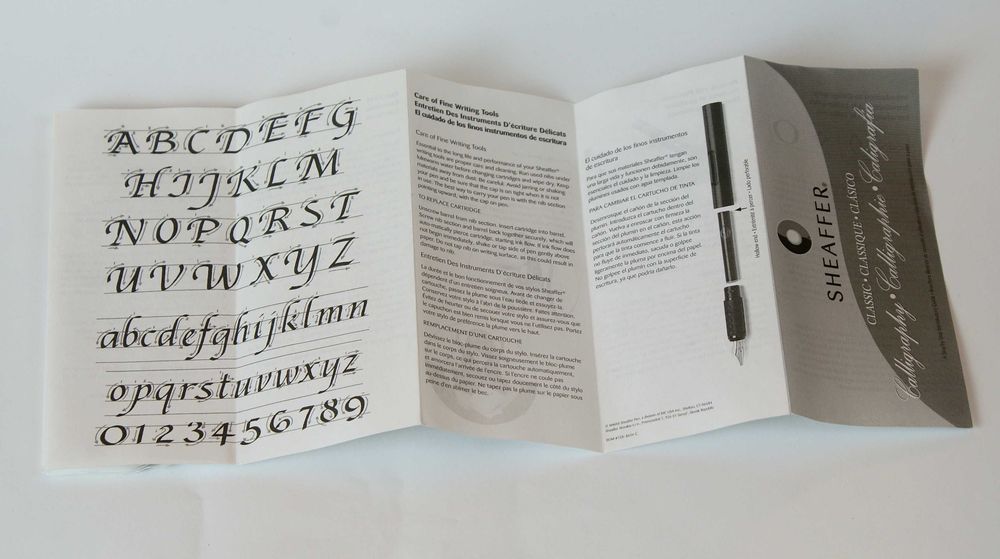 ABCDEFG
HIJKLM
NOPQRST
UVWXYZ
abcdefghijklmn
opqrstuvwxyz
0123456789
Care of Fine Writing Tools
Entretien Des Instruments D'écriture Délicats
El cuidado de los finos instrumentos de escritura
Care of Fine Writing Tools
Essential to the long life and performance of your Sheaffer®
writing tools are proper care and cleaning. Run used nibs under
lukewarm water before changing cartridges and wipe dry. Keep
materials away from dust. Be careful. Avoid jarring or shaking
your pen and be sure that the cap is on tight when it is not
in use. The best way to carry your pen is with the nib section
pointing upward, with the cap on pen.
TO REPLACE CARTRIDGE
Unscrew barrel from nib section. Insert cartridge into barrel.
Screw nib section and barrel back together securely, which will
automatically pierce cartridge, starting ink flow. If ink flow does
not begin immediately, shake or tap side of pen gently above
paper. Do not tap nib on writing surface, as this could result in
damage to nib.
Entretien Des Instruments D'écriture Délicats
La durée et le bon fonctionnement de vos stylos Sheaffer®
dépendent d'un entretien soigneux. Avant de changer de
cartouche, passez la plume sous l'eau tiède et essuyez-la.
Conservez votre stylo à l'abri de la poussière. Faites attention.
Évitez de heurter ou de secouer votre stylo et assurez-vous que
le capuchon est bien remis lorsque vous ne l'utilisez pas. Portez
votre stylo de préférence la plume vers le haut.
REMPLACEMENT D'UNE CARTOUCHE
Dévissez le bloc-plume du corps du stylo. Insérez la cartouche
dans le corps du stylo. Vissez soigneusement le bloc-plume
sur le corps, ce qui percera la cartouche automatiquement,
et amorcera l'arrivée de l'encre. Si l'encre ne coule pas
immédiatement, secouez ou tapez doucement le côté du stylo
au-dessus du papier. Ne tapez pas la plume sur le papier sous
peine d'en abîmer le bec.
El cuidado de los finos instrumentos
de escritura
Para que sus materiales Sheaffer® tengan
una larga vida y funcionen debidamente, son
esenciales el cuidado y la limpieza. Limpie los
plumines usados con agua templada.
PARA CAMBIAR EL CARTUCHO DE TINTA
Desenrosque el cañón de la sección del
plumín. Introduzca el cartucho dentro del
cañón. Vuelva a enroscar con firmeza la
sección del plumín en el cañón, esta acción
perforará automáticamente el cartucho
para que la tinta comience a fluir. Si la tinta
no fluye de inmediato, sacuda o golpee
ligeramente la pluma por encima del papel.
No golpee el plumín con la superficie de
escritura, ya que podría dañarlo.
Hollow end • Extrémité à percer • Lado perforable
SHEAFFER®
CLASSIC • CLASSIQUE • CLÁSICO
Calligraphy • Calligraphie • Caligrafía